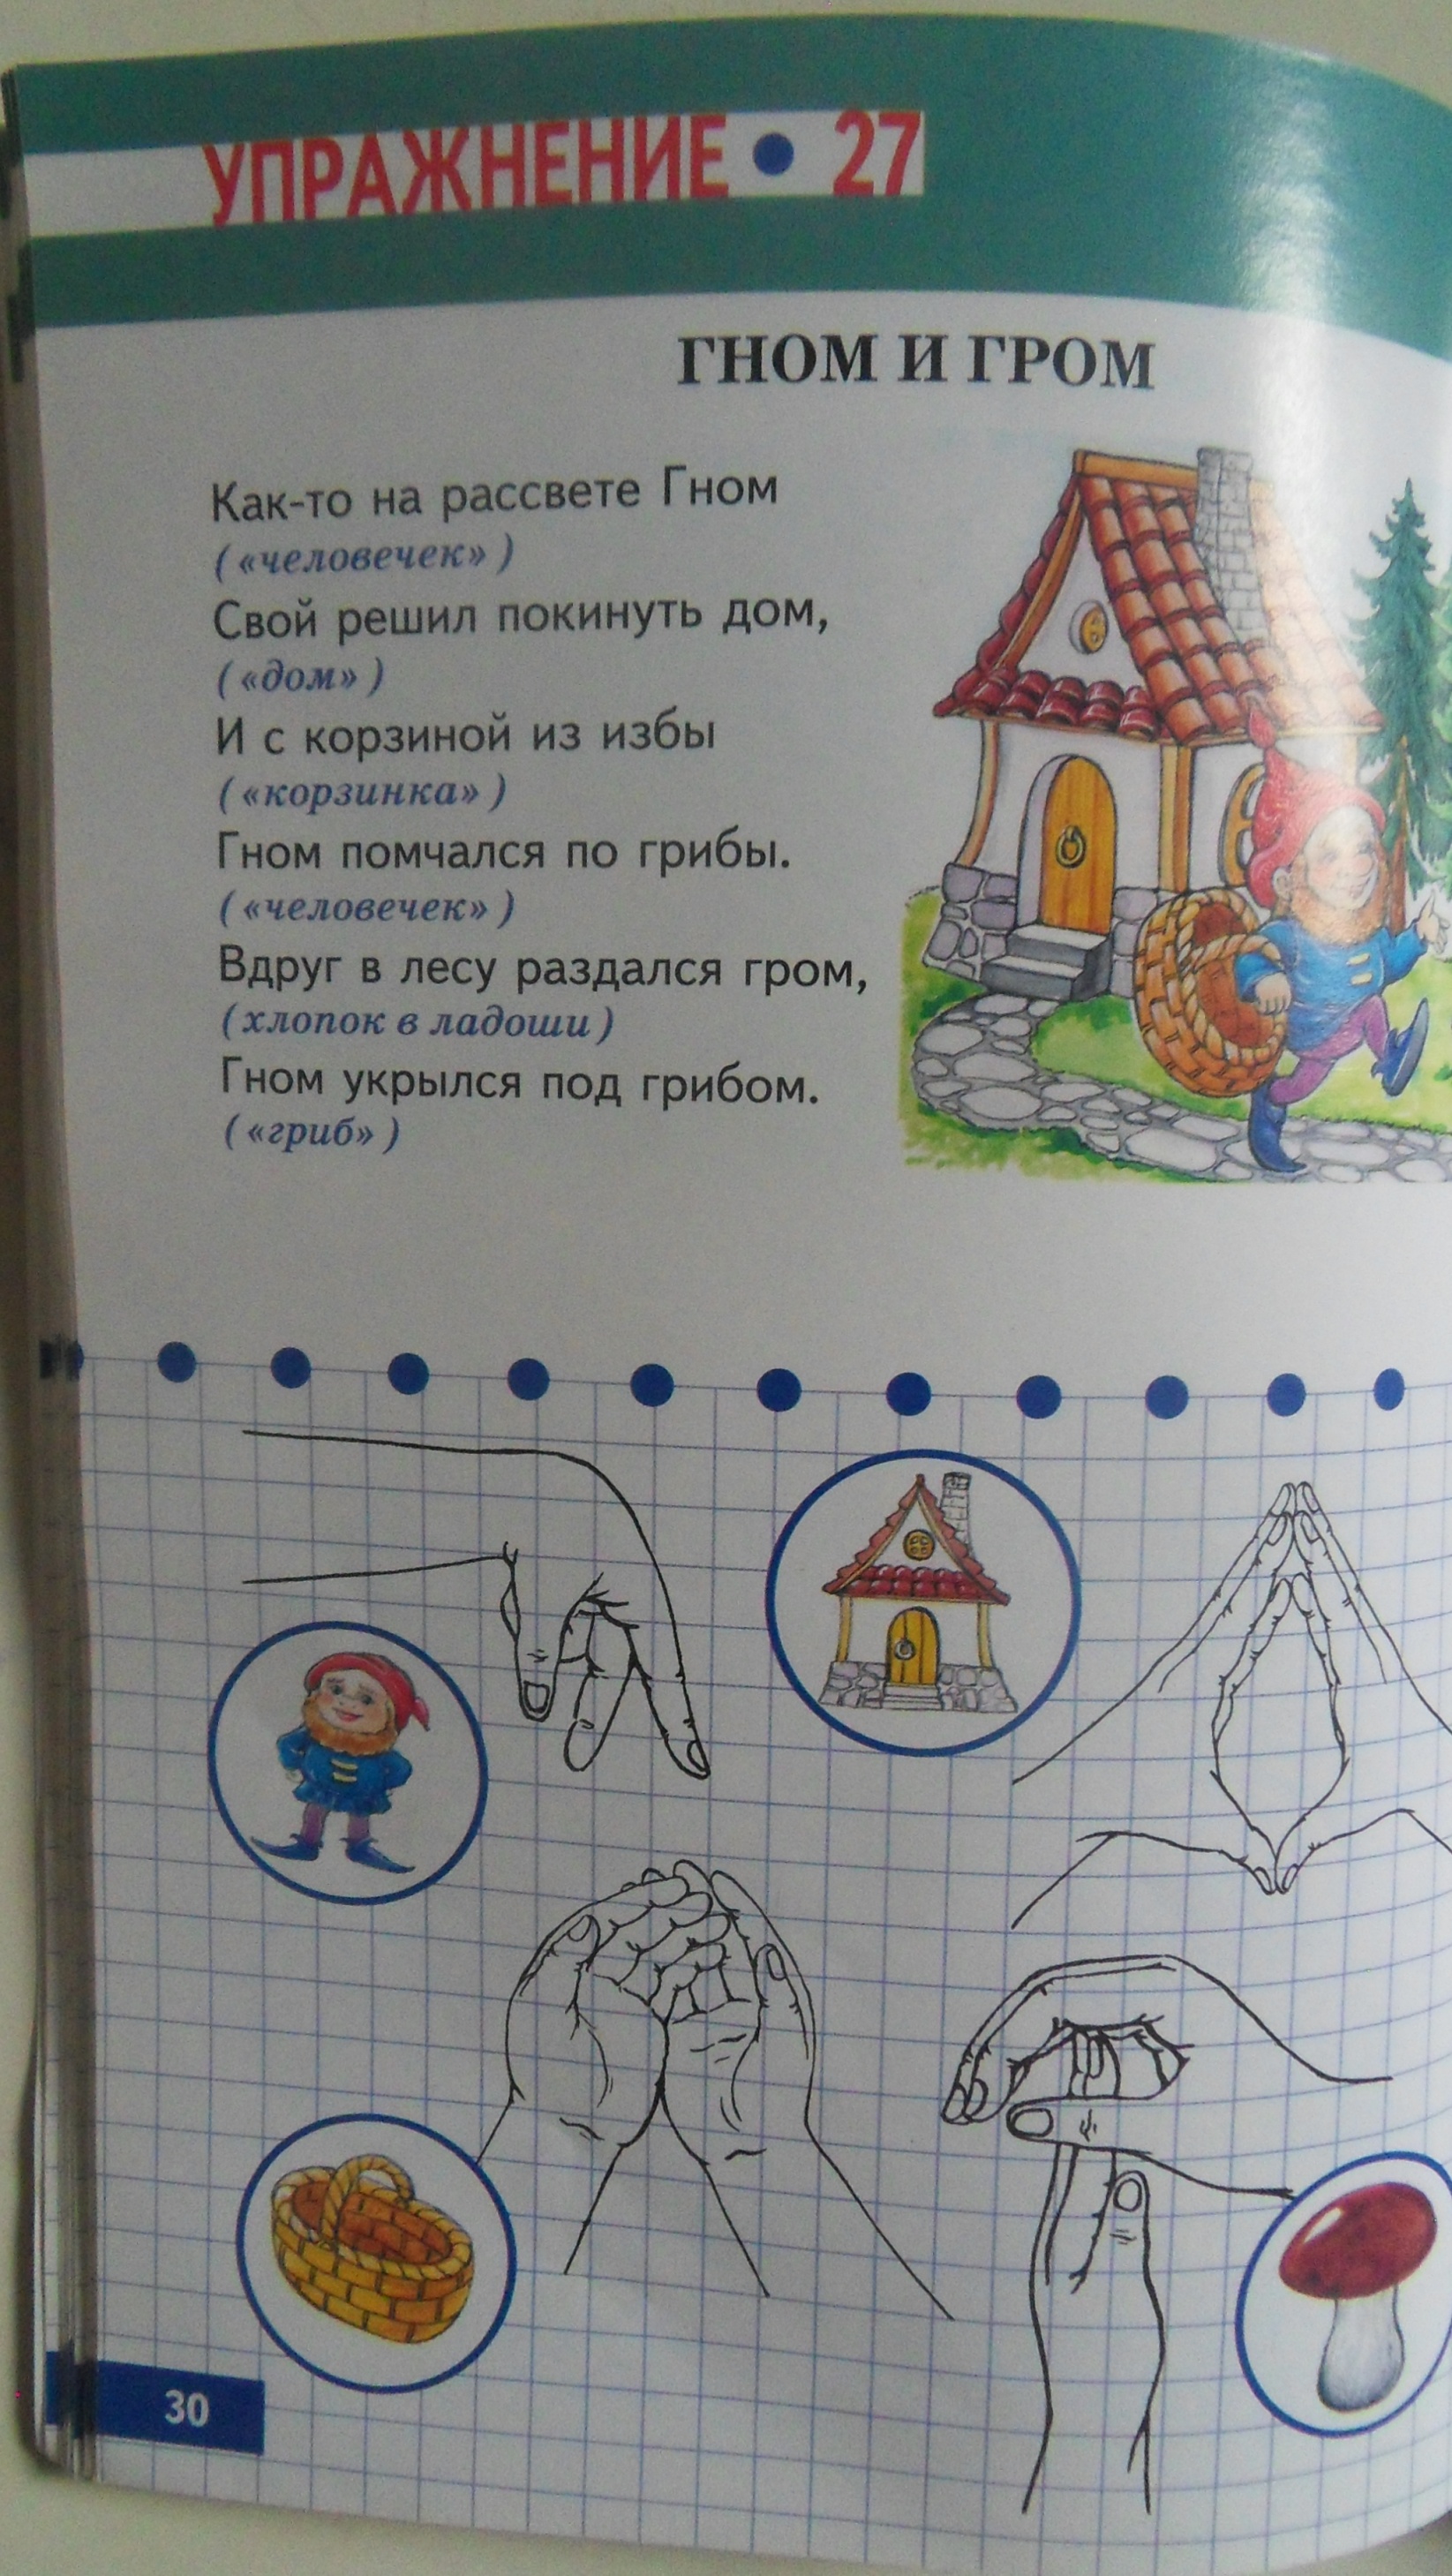 УПРАЖНЕНИЕ • 27
ГНОМ И ГРОМ
Как-то на рассвете Гном
(«человечек»)
Свой решил покинуть дом,
(«дом»)
И с корзиной из избы
(«корзинка»)
Гном помчался по грибы.
(«человечек»)
Вдруг в лесу раздался гром,
(хлопок в ладоши)
Гном укрылся под грибом.
(«гриб»)
30